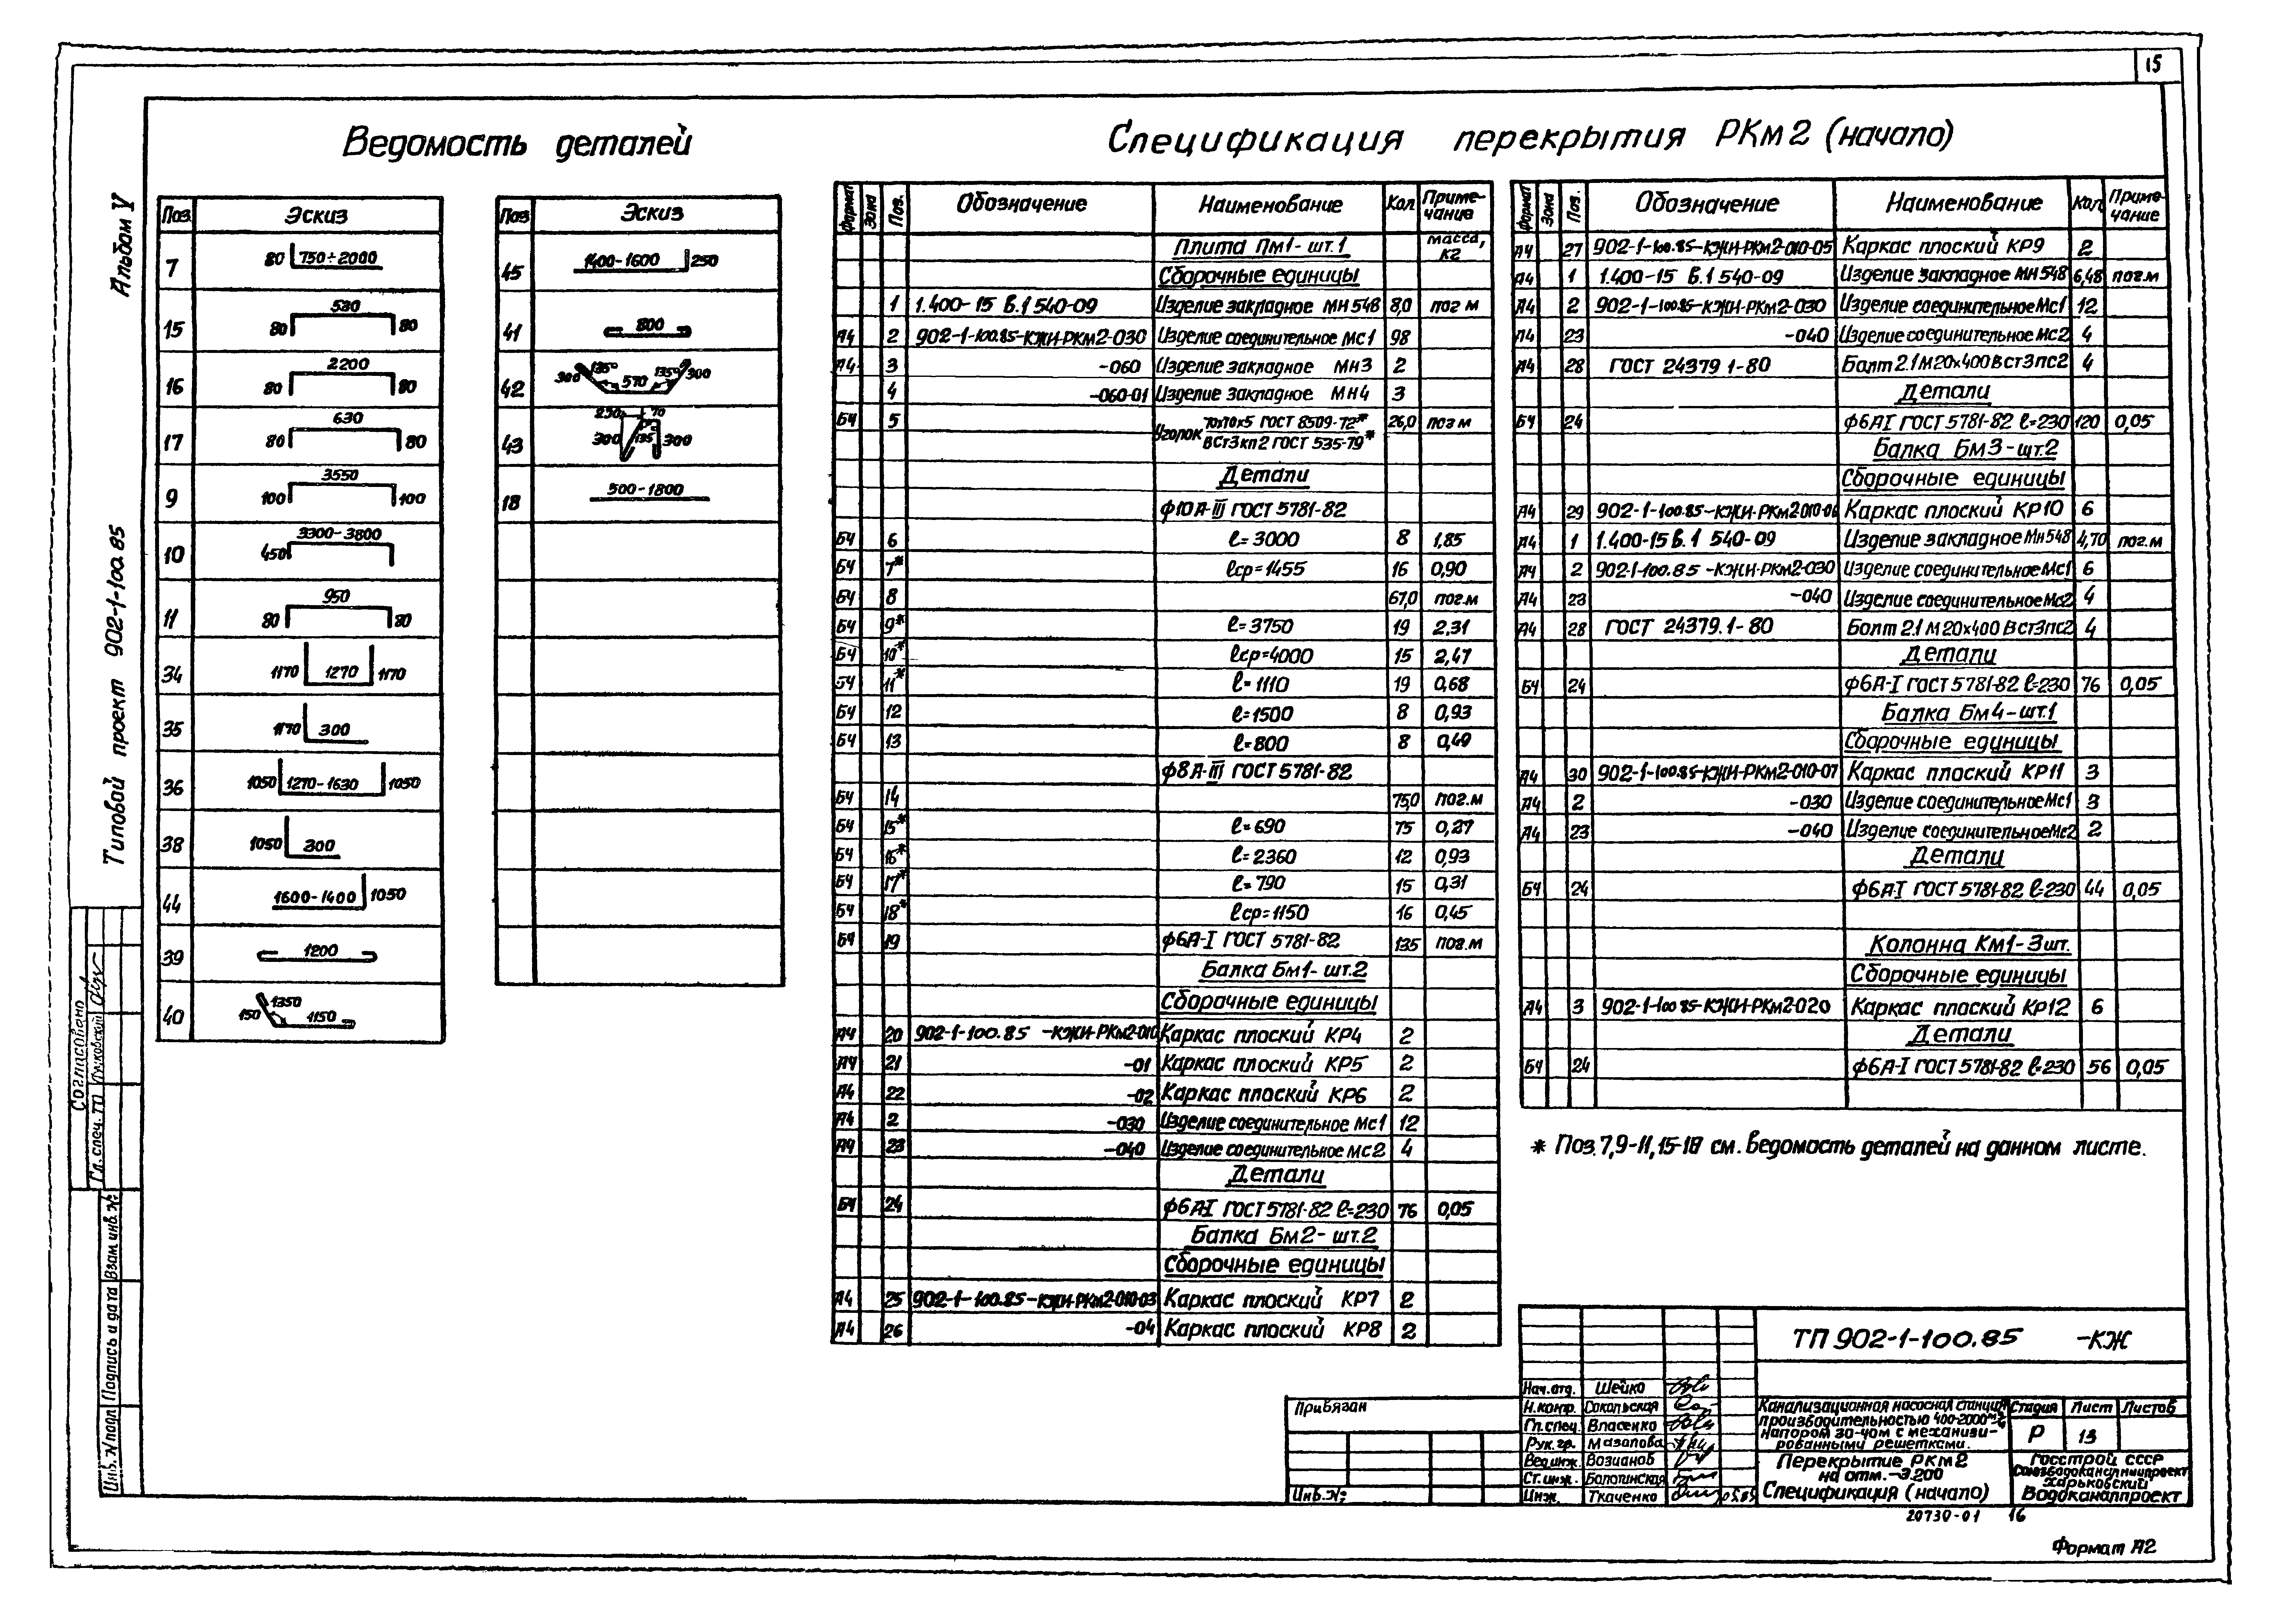 15
Ведомость деталей
Спецификация перекрытия РКм2 (начало)
Альбом V
Типовой проект 902-1-100.85
Поз Эскиз
7 80 750÷2000
15 80 530 80
16 80 2200 80
17 80 630 80
9 100 3550 100
10 450 3300-3800
11 80 950 80
34 1170 1270 1170
35 1170 300
36 1050 1270-1630 1050
38 1050 300
44 1600-1400 1050
39 1200
40 150 1350 1150
Поз Эскиз
45 1400-1600 250
41 800
42 300 135° 570 135° 300
43 230 70 300 135 300
18 500-1800
Формат Зона Поз. Обозначение Наименование Кол Приме-чание
Плита Пм1- шт.1 масса, кг
Сборочные единицы
1 1.400-15 В.1 540-09 Изделие закладное МН548 8,0 пог м
А4 2 902-1-100.85-КЖИ-РКм2-030 Изделие соединительное Мс1 98
А4 3 -060 Изделие закладное МН3 2
4 -060-01 Изделие закладное МН4 3
БЧ 5 Уголок 70х70х5 ГОСТ 8509-72* / ВСт3кп2 ГОСТ 535-79* 26,0 пог м
Детали
ф10А-III ГОСТ 5781-82
БЧ 6 ℓ=3000 8 1,85
БЧ 7* ℓср=1455 16 0,90
БЧ 8 67,0 пог.м
БЧ 9* ℓ=3750 19 2,31
БЧ 10* ℓср=4000 15 2,47
БЧ 11* ℓ=1110 19 0,68
БЧ 12 ℓ=1500 8 0,93
БЧ 13 ℓ=800 8 0,49
ф8А-III ГОСТ 5781-82
БЧ 14 75,0 пог.м
БЧ 15* ℓ=690 75 0,27
БЧ 16* ℓ=2360 12 0,93
БЧ 17* ℓ=790 15 0,31
БЧ 18* ℓср=1150 16 0,45
БЧ 19 ф6А-I ГОСТ 5781-82 135 пог.м
Балка Бм1- шт.2
Сборочные единицы
А4 20 902-1-100.85 -КЖИ-РКм2-010 Каркас плоский КР4 2
А4 21 -01 Каркас плоский КР5 2
А4 22 -02 Каркас плоский КР6 2
А4 2 -030 Изделие соединительное Мс1 12
А4 23 -040 Изделие соединительное Мс2 4
Детали
БЧ 24 ф6А-I ГОСТ 5781-82 ℓ=230 76 0,05
Балка Бм2- шт.2
Сборочные единицы
А4 25 902-1-100.85-КЖИ-РКм2-010-03 Каркас плоский КР7 2
А4 26 -04 Каркас плоский КР8 2
Формат Зона Поз. Обозначение Наименование Кол Приме-чание
А4 27 902-1-100.85-КЖИ-РКм2-010-05 Каркас плоский КР9 2
А4 1 1.400-15 В.1 540-09 Изделие закладное МН548 6,48 пог.м
А4 2 902-1-100.85-КЖИ-РКм2-030 Изделие соединительное Мс1 12
А4 23 -040 Изделие соединительное Мс2 4
А4 28 ГОСТ 24379 1-80 Болт 2.1 М20х400 ВСт3пс2 4
Детали
БЧ 24 ф6АI ГОСТ 5781-82 ℓ=230 120 0,05
Балка Бм3-шт.2
Сборочные единицы
А4 29 902-1-100.85-КЖИ-РКм2010-06 Каркас плоский КР10 6
А4 1 1.400-15 В.1 540-09 Изделие закладное МН548 4,70 пог.м
А4 2 902-1-100.85 -КЖИ-РКм2-030 Изделие соединительное Мс1 6
А4 23 -040 Изделие соединительное Мс2 4
А4 28 ГОСТ 24379.1-80 Болт 2.1 М20х400 ВСт3пс2 4
Детали
БЧ 24 ф6А-I ГОСТ 5781-82 ℓ=230 76 0,05
Балка Бм4-шт.1
Сборочные единицы
А4 30 902-1-100.85-КЖИ-РКм2-010-07 Каркас плоский КР11 3
А4 2 -030 Изделие соединительное Мс1 3
А4 23 -040 Изделие соединительное Мс2 2
Детали
БЧ 24 ф6А-I ГОСТ 5781-82 ℓ=230 44 0,05
Колонна Км1-3шт.
Сборочные единицы
А4 3 902-1-100 85-КЖИ-РКм2-020 Каркас плоский КР12 6
Детали
БЧ 24 ф6А-I ГОСТ 5781-82 ℓ=230 56 0,05
* Поз.7,9-11,15-18 см. Ведомость деталей на данном листе.
ТП 902-1-100.85 -КЖ
Нач.отд. Шейко
Н.контр. Сокольская
Гл.спец. Власенко
Рук.гр.
Вед.инж. Возианов
Ст.инж. Болотинская
Инж. Ткаченко
Канализационная насосная станция
производительностью 400-2000 м³/ч
напором 30-40м с механизи-
рованными решетками.
Перекрытие РКм2
на отм.-3.200
Спецификация (начало)
Стадия Лист Листов
Р 13
Госстрой СССР
Союзводоканалниипроект
Харьковский
Водоканалпроект
Привязан
Инв.№:
20730-01 16
Формат А2
Согласовано
Гл.спец. ТО
Инв. № подл Подпись и дата Взам инв. №: